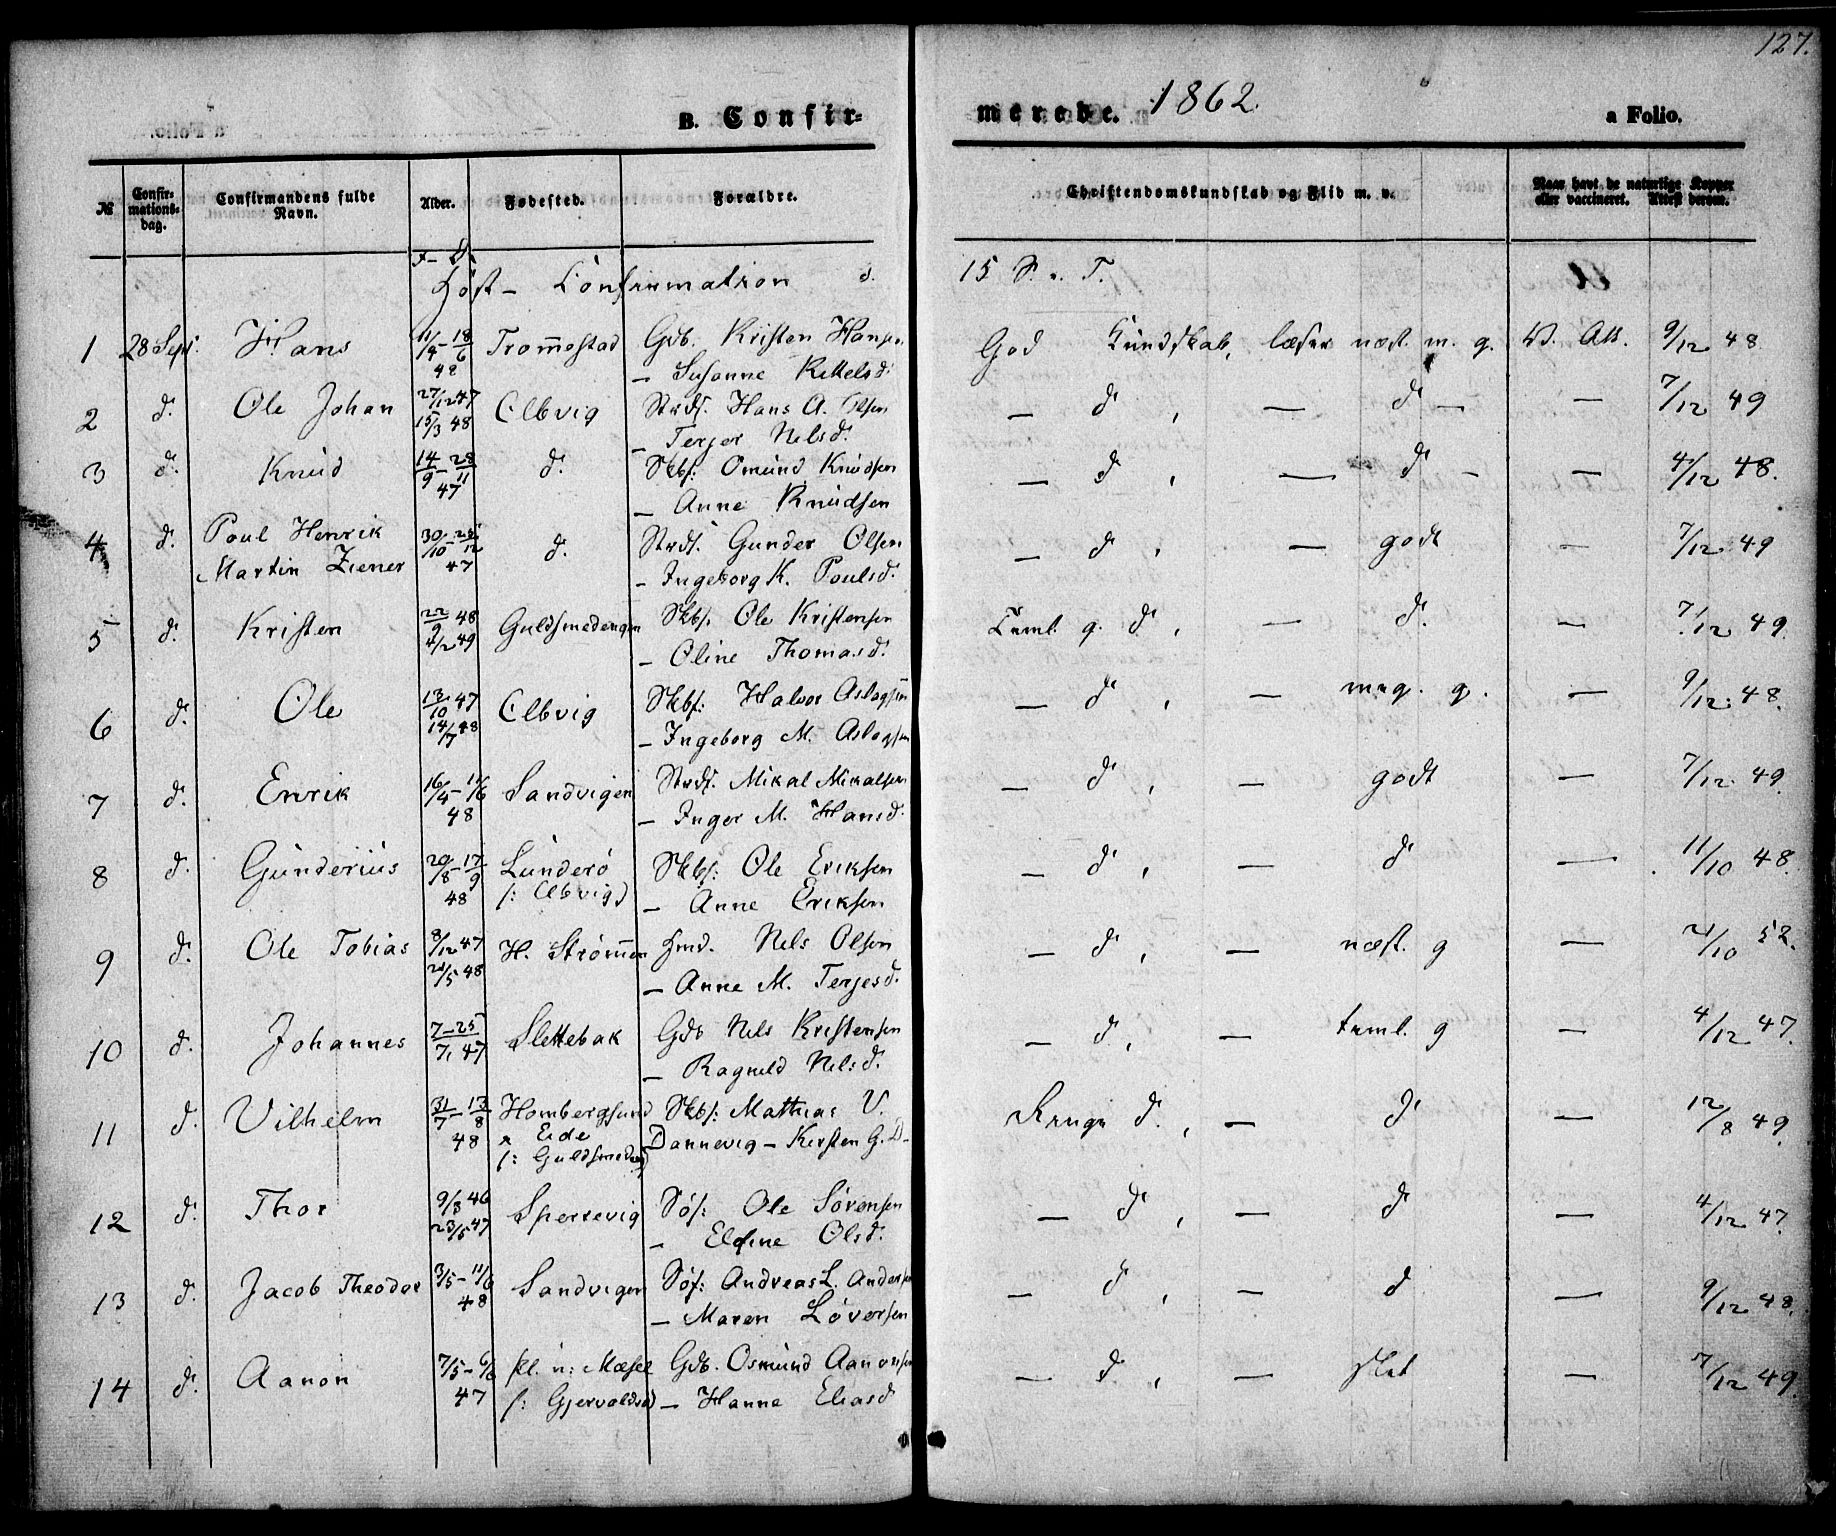 127.
B. Confir-
merede. 1862.
a Folio.
№
Confir-
mations-
dag.
Confirmandens fulde
Navn.
Alder.
Fødested.
Forældre.
Christendomskundskab og Flid m. v.
Naar havt de naturlige Kopper
eller vaccineret. Attest derom.
F - D.
Høst - Confirmation d. 15 S. e. T.
1 28 Sept. Hans Trommestad Gdb. Kristen Hansen God Kundskab, læser næst. m. g. V. Att. 9/12 48
48 — Susanne Kittelsd.
2 d. Ole Johan 27/12 47 Elbvig Strds. Hans A. Olsen — d , — d — — 7/12 49
15/3 48 — Terjer Nilsd.
3 d. Knud 14/9 - 28/11 d. Skbf. Omund Knudsen — d , — d - — 4/12 48.
47 — Anne Knudsen
4 d. Poul Henrik 30/10 - 25/12 d. Strds. Gunder Olsen — d , — godt — 7/12 49
Martin Ziener 47 - Ingeborg K. Poulsd.
5 d. Kristen 22/9 48 Guldsmedengen Skbf. Ole Kristensen Teml. g. d , — d. — 7/12 49.
4/2 49 — Oline Thomasd.
6 d. Ole 13/10 47 Elbvig Skbf: Halvor Aslagsen — d , — meg. g. — 9/12 48.
48 — Ingeborg M. Aslagsen
7 d. Enrik 16/4 - 11/6 Sandvigen Strds. Mikal Mikalsen — d , — godt — 7/12 49.
48 — Inger M. Hansd.
8 d. Gunderius 20/8 - 17/9 Lunderö Skbf: Ole Eriksen — d , — d — 11/10 48.
48 (: Elbvig) — Anne Eriksen
9 d. Ole Tobias 8/12 47 H. Strömmen Hmd. Nils Olsen — d , — næst. g — 21/10 52.
21/5 48 — Anne M. Terjesd.
10 d. Johannes 7 - 25 Slettebak Gdb Nils Kristensen — d , — teml. g — 4/12 47.
7, 47 — Ragnild Nilsd.
11 d. Vilhelm 31/7 - 13/8 Hombergsund Skbf: Mathias V. Ringe d. , — d — 12/8 49
48 Eide Dannevig — Kirsten G. D-
(: Guldsmedeng)
12 d. Thor 9/3 46 Sperrevig Söf: Ole Sörensen — d , — d — 4/12 47
23/5 47 — Eline Olsd.
13 d. Jacob Theodor 3/5 - 11/6 Sandvigen Söf: Andreas L. Andersen — d , — d — 9/12 48.
48 — Maren Löversen
14 d. Aanon 7/5 - 6/6 pl. u: Mæsel Gdb. Osmund Aanonsen — d. , — slet — 7/12 49.
47 (: Gjervoldsö) — Hanne Eliasd